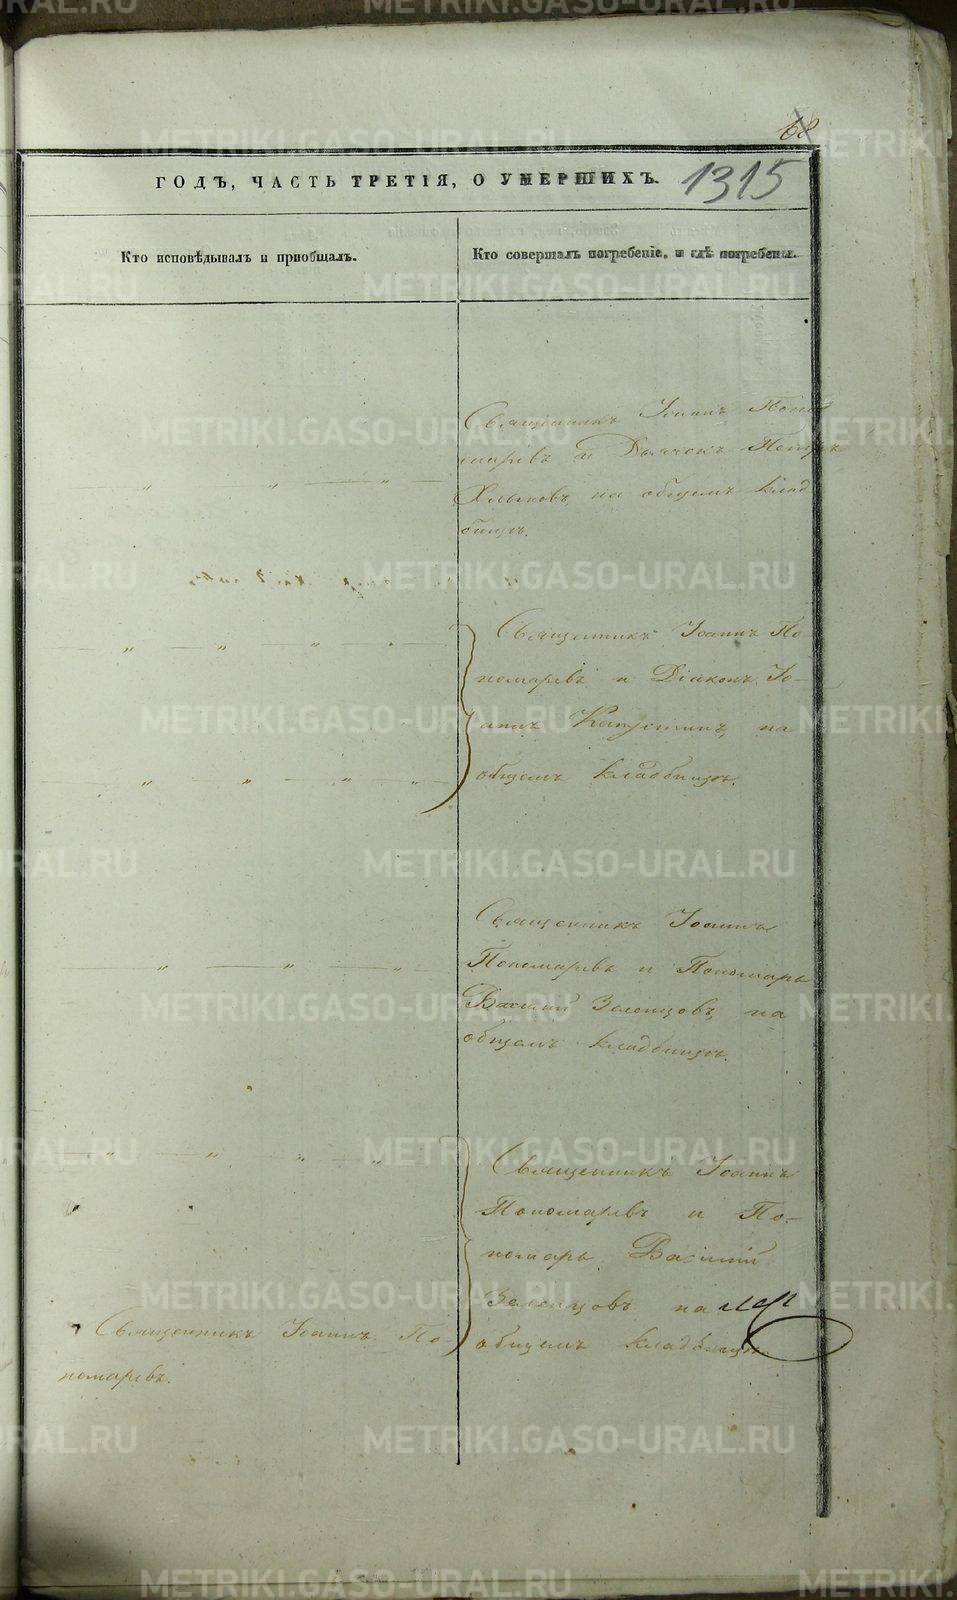 68
ГОДЪ, ЧАСТЬ ТРЕТІЯ, О УМЕРШИХЪ.
1315
Кто исповѣдывалъ и пріобщалъ.
Кто совершалъ погребеніе, и гдѣ погребены.
Священникъ Іоаннъ Поно
маревъ и Дьячокъ Петръ
Хлыновъ, на общемъ клад
бищѣ.
Священникъ Іоаннъ По-
номаревъ и Діаконъ Іо-
аннъ Капустинъ, на
общемъ кладбищѣ.
Священникъ Іоаннъ
Пономаревъ и Пономарь
Василій Зеленцовъ, на
общемъ кладбищѣ.
Священникъ Іоаннъ
Пономаревъ и По-
номарь Василій
Зеленцовъ на
общемъ кладбищѣ.
Священникъ Іоаннъ По-
номаревъ.
METRIKI.GASO-URAL.RU